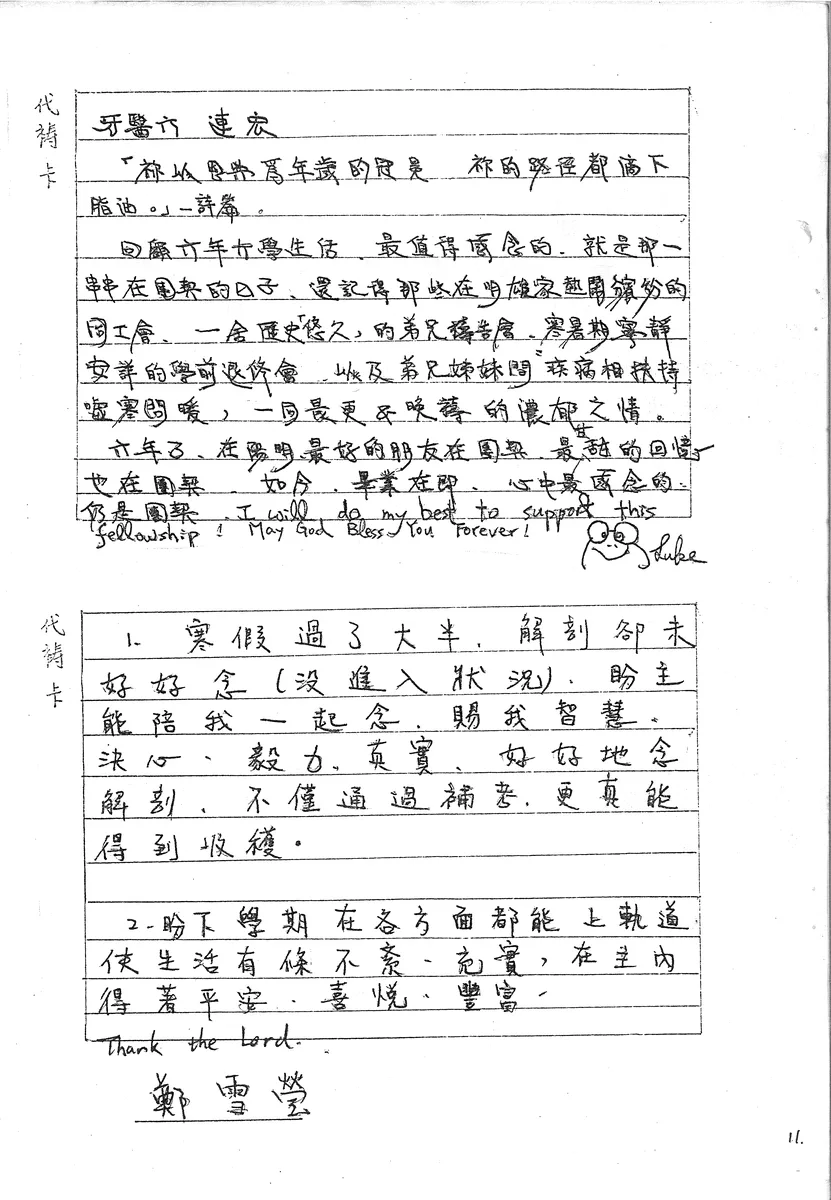 代禱卡
牙醫六 連宏
「祢以恩典為年歲的冠冕 祢的路徑都滴下
脂油。」—詩篇。
回顧六年大學生活、最值得感念的、就是那一
串串在團契的日子、還記得那些在明雄家熱鬧繽紛的
同工會、一舍歷史「悠久」的弟兄禱告會、寒暑期寧靜
安詳的學前退修會、以及弟兄姊妹間疾病相扶持
噓寒問暖,一同最更
的濃郁之情。
六年了、在陽明最好的朋友在團契、最
的回憶
也在團契、如今、畢業在即、心中最感念的、
仍是團契、I will do my best to support this
fellowship! May God Bless You Forever!
Luke
代禱卡
1. 寒假過了大半、解剖卻未
好好念(沒進入狀況)、盼主
能陪我一起念、賜我智慧、
決心、毅力、真實、好好地念
解剖、不僅通過補考、更真能
得到收穫。
2. 盼下學期在各方面都能上軌道
使生活有條不紊、充實,在主內
得著平安、喜悅、豐富、
Thank the Lord.
鄭雪瑩
11.